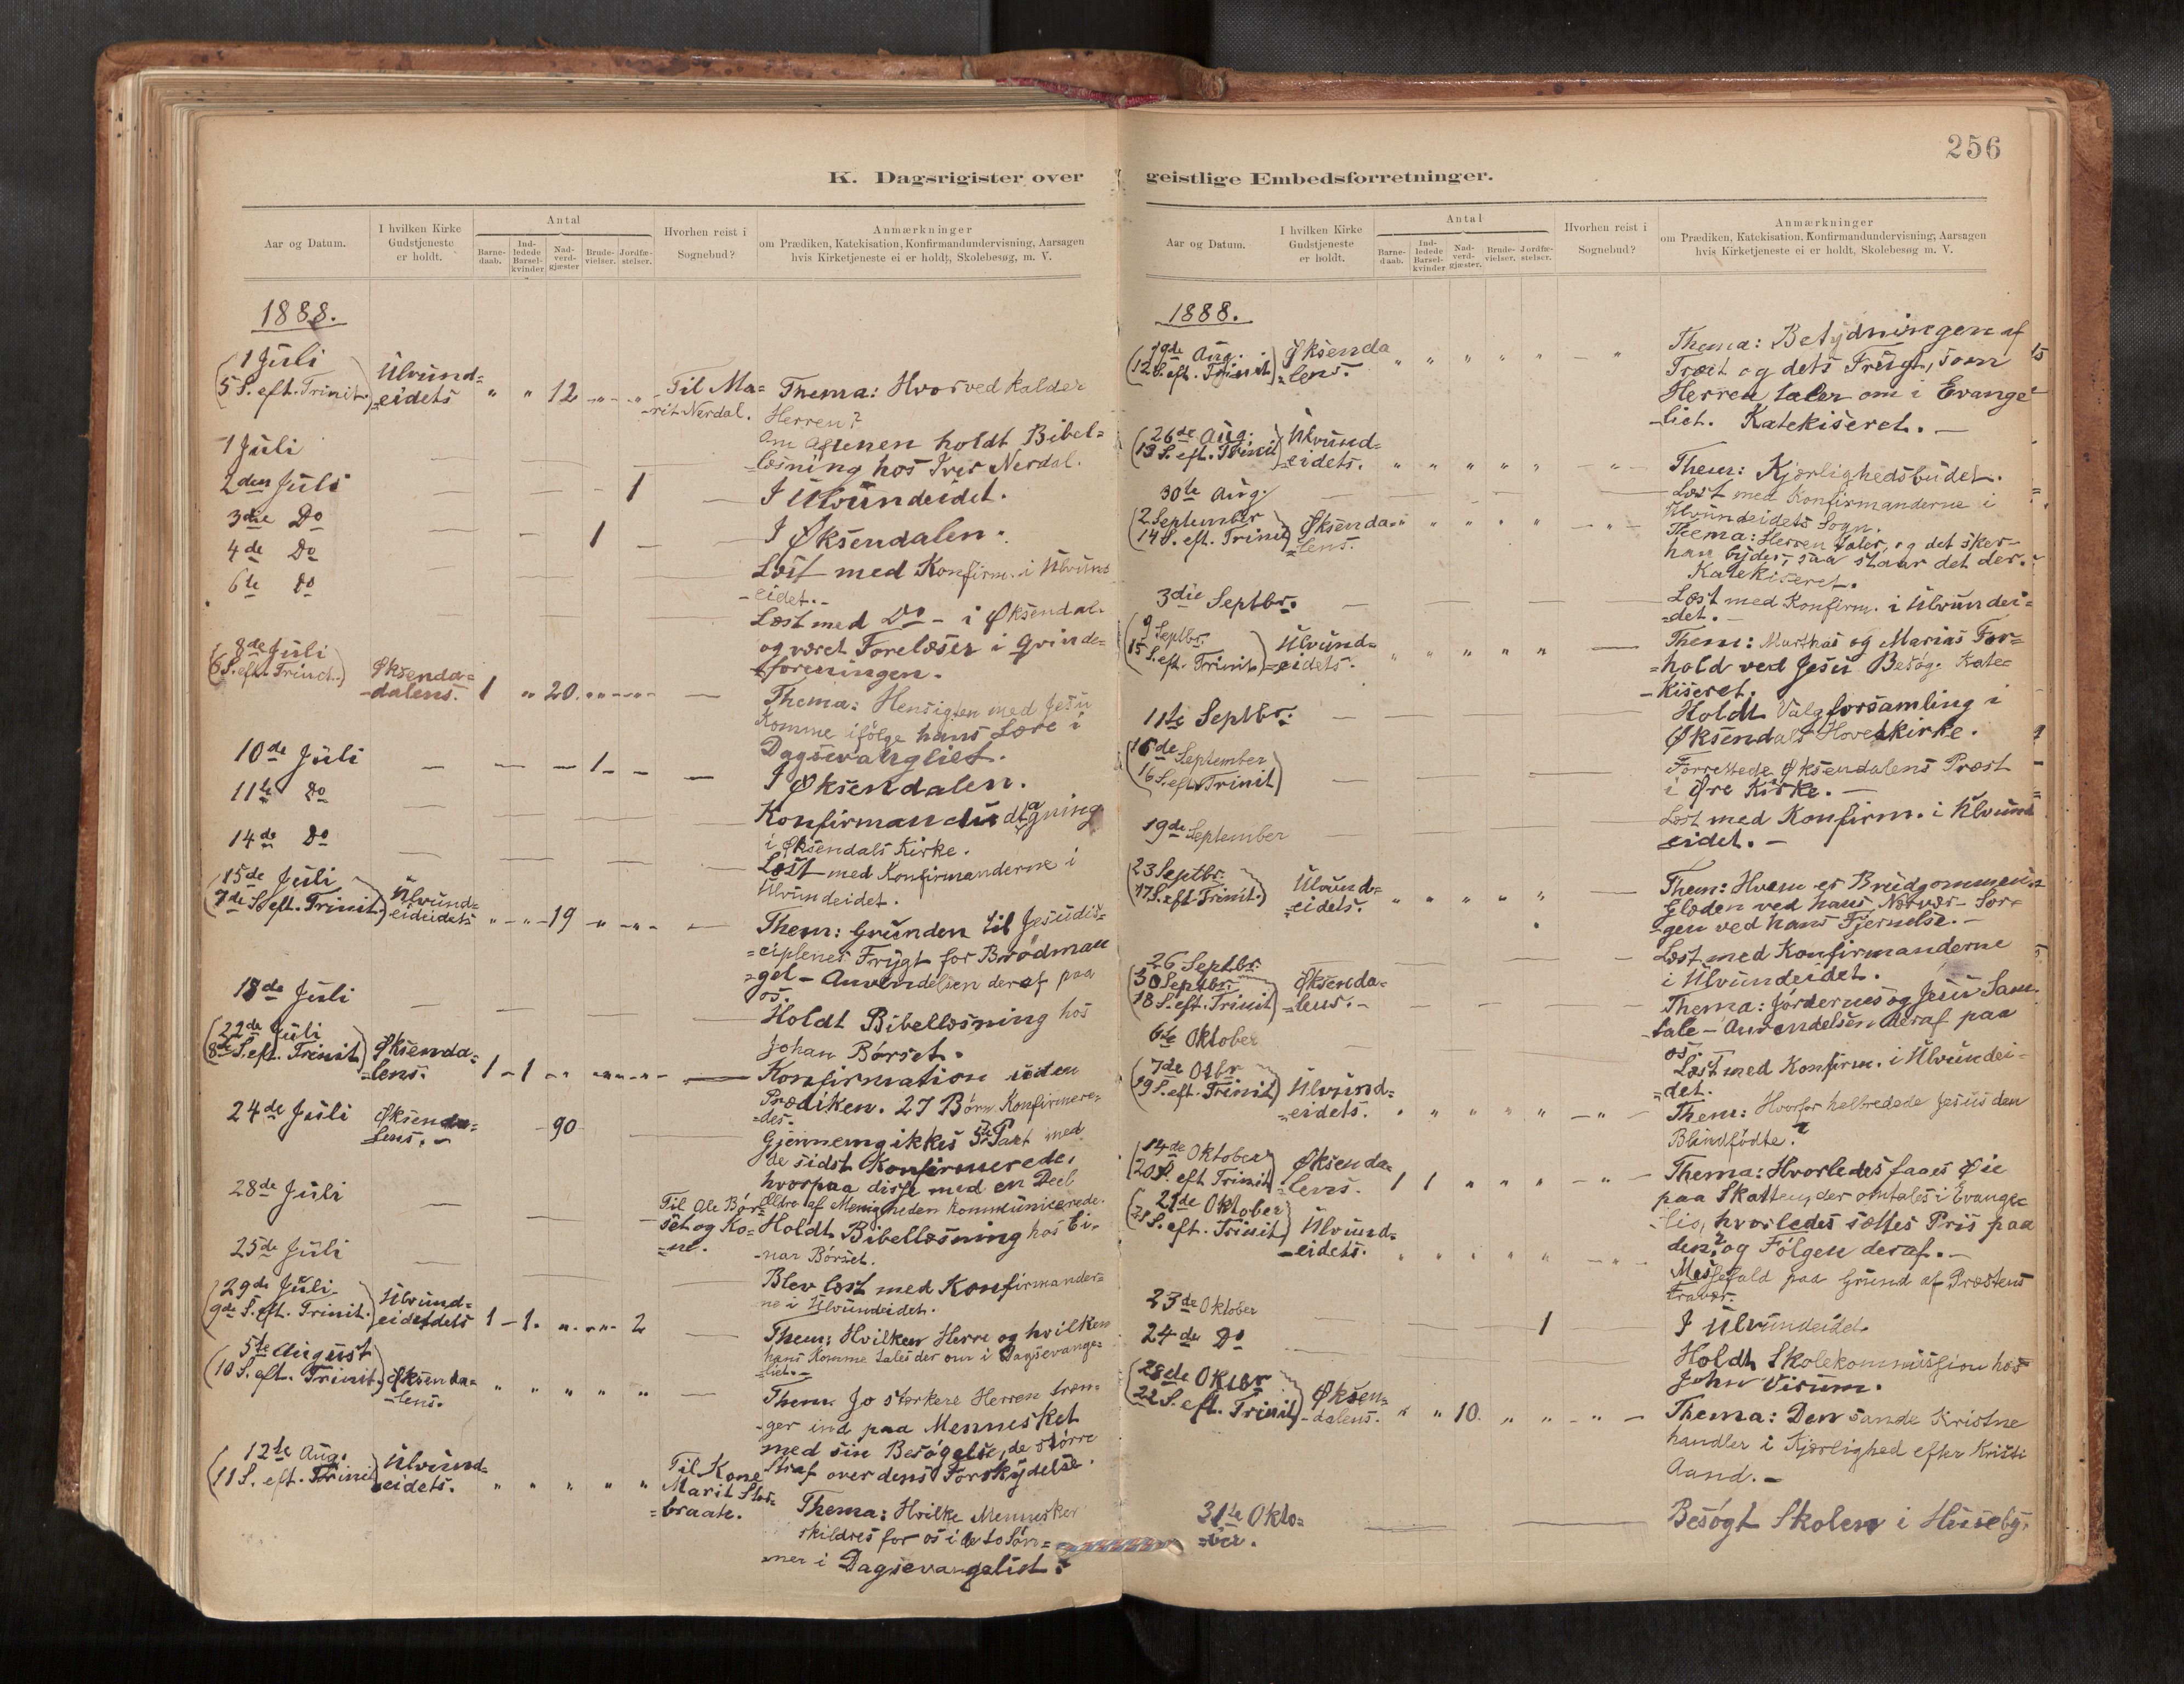 256
K. Dagsrigister over
Aar og Datum.
I hvilken Kirke
Gudstjeneste
er holdt.
Antal
Barne-
daab.
Ind-
ledede
Barsel-
kvinder
Nad-
verd-
gjæster
Brude-
vielser.
Jordfæ-
stelser.
Hvorhen reist i
Sognebud?
Anmærkninger
om Prædiken, Katekisation, Konfirmandundervisning, Aarsagen
hvis Kirketjeneste ei er holdt, Skolebesøg, m. V.
1888.
1 Juli
(5 S. eft. Trinit.)
Ulvund=
=eidets
" " 12 " "
Til Ma=
=rit Nerdal.
Thema: Hvorved kalder
Herren?
1 Juli
Om Aftenen holdt Bibel=
=læsning hos Iver Nerdal.
2den Juli
1
I Ulvundeidet.
3die Do
1
I Øksendalen.
4de Do
Læst med Konfirm. i Ulvund
=eidet.-
6te Do
Læst med Do - i Øksendal.
og været Forelæser i Qvinde-
=foreningen.
8de Juli
(6 S. eft. Trinit.)
Øksenda=
=dalens.
1 " 20. " "
Thema: Hensigten med Jesu
Komme ifølge hans Lære i
Dagsevangliet.
10de Juli
1
I Øksendalen.
11te Do
Konfirmandudtagning
i Øksendals Kirke.
14de Do
Læst med Konfirmanderne i
Ulvundeidet.
15de Juli
(7de S. eft. Trinit.)
Ulvund=
=eideidets
" " 19 " "
Them: Grunden til Jesu dis=
=ciplenes Frygt for Brødman
=gel - Anvendelsen deraf paa
os.
18de Juli
Holdt Bibellæsning hos
Johan Børset.
(22de Juli
8de S. eft. Trinit)
Øksenda=
=lens.
1 - 1 " " "
Konfirmation uden
Prædiken. 27 Børn Konfirmere=
=des.
24de Juli
Øksenda=
lens. -
90
Gjennemgikkes 5te Part med
de sidst Konfirmerede,
hvorpaa disse med en Deel
Ældre af Menigheden kommunicerede.
28de Juli
Til Ole Bør=
set og Ko=
=ne.
Holdt Bibellæsning hos Ei-
=nar Børset.
25de Juli
Blev læst med Konfirmander=
ne i Ulvundeidet.
(29de Juli
9de S. eft. Trinit.)
Ulvund=
eidetdets
1 - 1. " " 2
Them: Hvilken Herre og hvilken
hans Komme tales der om i Dagsevange=
liet.-
5te August
(10 S. eft. Trinit.)
Øksenda=
=lens.
" " " " "
Them: Jo stærkere Herren træn=
=ger ind paa Mennesket
med sin Besøgelse, de større
Straf over dens Forskydelse.
12te Aug.
(11 S. eft. Trinit)
Ulvund=
eidets.
" " " " "
Til Kone
Marit Stor=
=braate.
Thema: Hvilke Mennesker
skildres for os i de to Søn=
=ner i Dagsevangeliet?
geistlige Embedsforretninger.
Aar og Datum.
I hvilken Kirke
Gudstjeneste
er holdt.
Antal
Barne-
daab.
Ind-
ledede
Barsel-
kvinder
Nad-
verd-
gjæster.
Brude-
vielser.
Jordfæ-
stelser.
Hvorhen reist i
Sognebud?
Anmærkninger
om Prædiken, Katekisation, Konfirmandundervisning, Aarsagen
hvis Kirketjeneste ei er holdt, Skolebesøg m. V.
1888.
(19de Aug.
12 S. eft. Trinit)
Øksenda
=lens.
" " " " " "
Thema: Betydningen af
Træit og dets Frugt, som
Herren taler om i Evange
=liet. Katekiseret. -
(26de Aug.
13 S. eft. Trinit)
Ulvund=
=eidets.
" " " " " "
Them: Kjærlighedsbudet.
30te Aug.
Læst med Konfirmanderne i
Ulvundeidets Sogn.
(2 September
14 S. eft. Trinit)
Øksenda=
=lens.
" " " " " "
Thema: Herren taler, og det sker
han byder, saa staar det der.
Katekiseret.
3die Septbr.
Læst med Konfirm. i Ulvundei=
=det. -
(9 Septbr.
15 S. eft. Trinit.)
Ulvund=
=eidets.
" " " " "
Them: Marthas og Marias For=
=hold ved Jesu Besøg. Kate=
=kiseret.
11te Septbr:
Holdt Valgforsamling i
Øksendals Hovedkirke.
(16de September
16 S. eft. Trinit)
Forrettede Øksendalens Præst
i Øre Kirke. -
19de September
Læst med Konfirm. i Ulvund
eidet. -
(23 Septbr.
17 S. eft Trinit.)
Ulvund=
=eidets.
" " " " "
Them: Hvem er Brudgommen
Glæden ved hans Nærvær - Sor=
=gen ved hans Fjernelse. -
26 Septbr.
Læst med Konfirmanderne
i Ulvundeidet.
(30 Septbr.
18 S. eft. Trinit)
Øksenda=
=lens. -
Thema: Jødernes og Jesu Sam
tale - Anvendelsen deraf paa
os.
6te Oktober
Læst med Konfirm. i Ulvundei=
=det.
(7de Otbr
19 S. eft. Trinit)
Ulvund=
=eidets.
" " " " " "
Them: Hvorfor helbredede Jesus den
Blindfødte?
(14de Oktober
20 S. eft Trinit)
Øksenda=
lens.
1 1 " " " "
Thema: Hvorledes faaes Øie
paa Skatten, der omtales i Evange=
lio, hvorledes sættes Pris paa
den? og Følgen deraf. -
(21de Oktober
21 S. eft. Trinit)
Ulvund=
=eidets.
" " " " " "
Messefald paa Grund af Præstens
Fravær.
23de Oktober
1
I Ulvundeidet.
24de Do
Holdt Skolekommission hos
John Virum.
(28de Oktbr
22 S. eft. Trinit)
Øksen=
=dalens.
" " 10. " " "
Thema: Den sande Kristne
handler i Kjærlighed efter Kristi
Aand. -
31te Okto=
=ber.
Besøgt Skolen i Huseby.